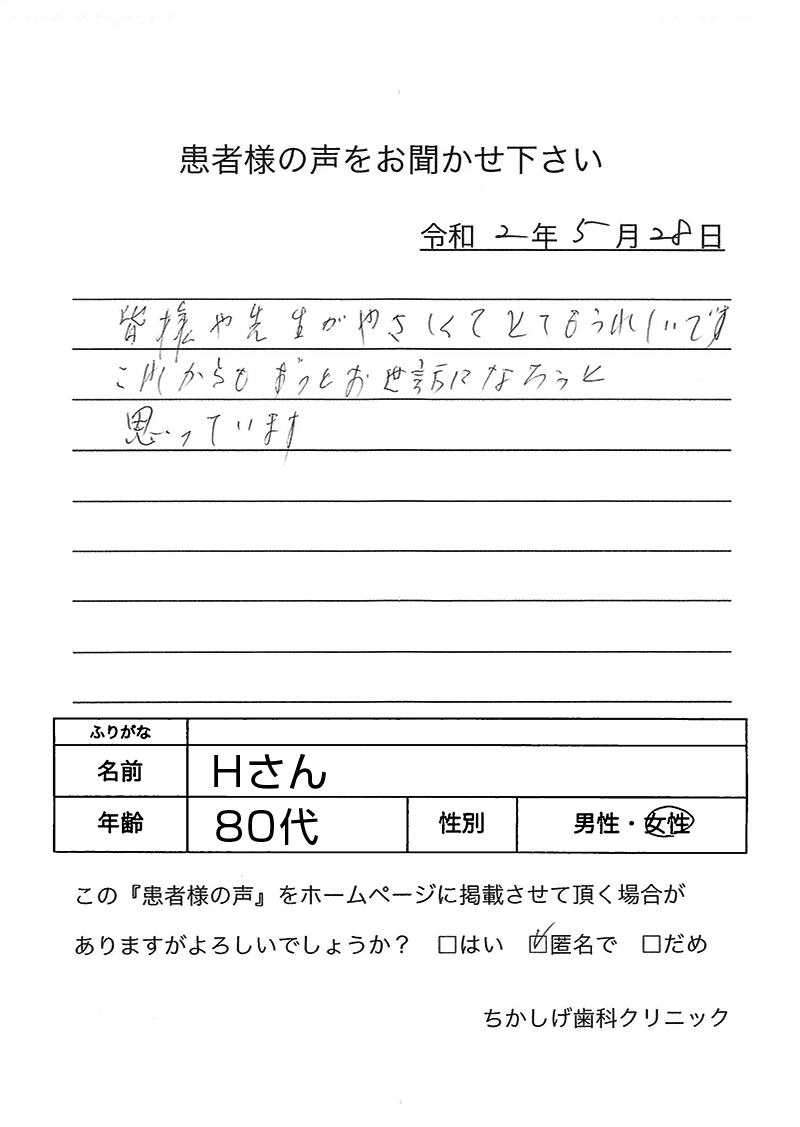 患者様の声をお聞かせ下さい
令和 2年 5月28日
皆様や先生がやさしくてとてもうれしいです
これからもずっとお世話になろうと
思っています
ふりがな
名前 Hさん
年齢 80代 性別 男性・女性
この『患者様の声』をホームページに掲載させて頂く場合が
ありますがよろしいでしょうか？ □はい ☑匿名で □だめ
ちかしげ歯科クリニック